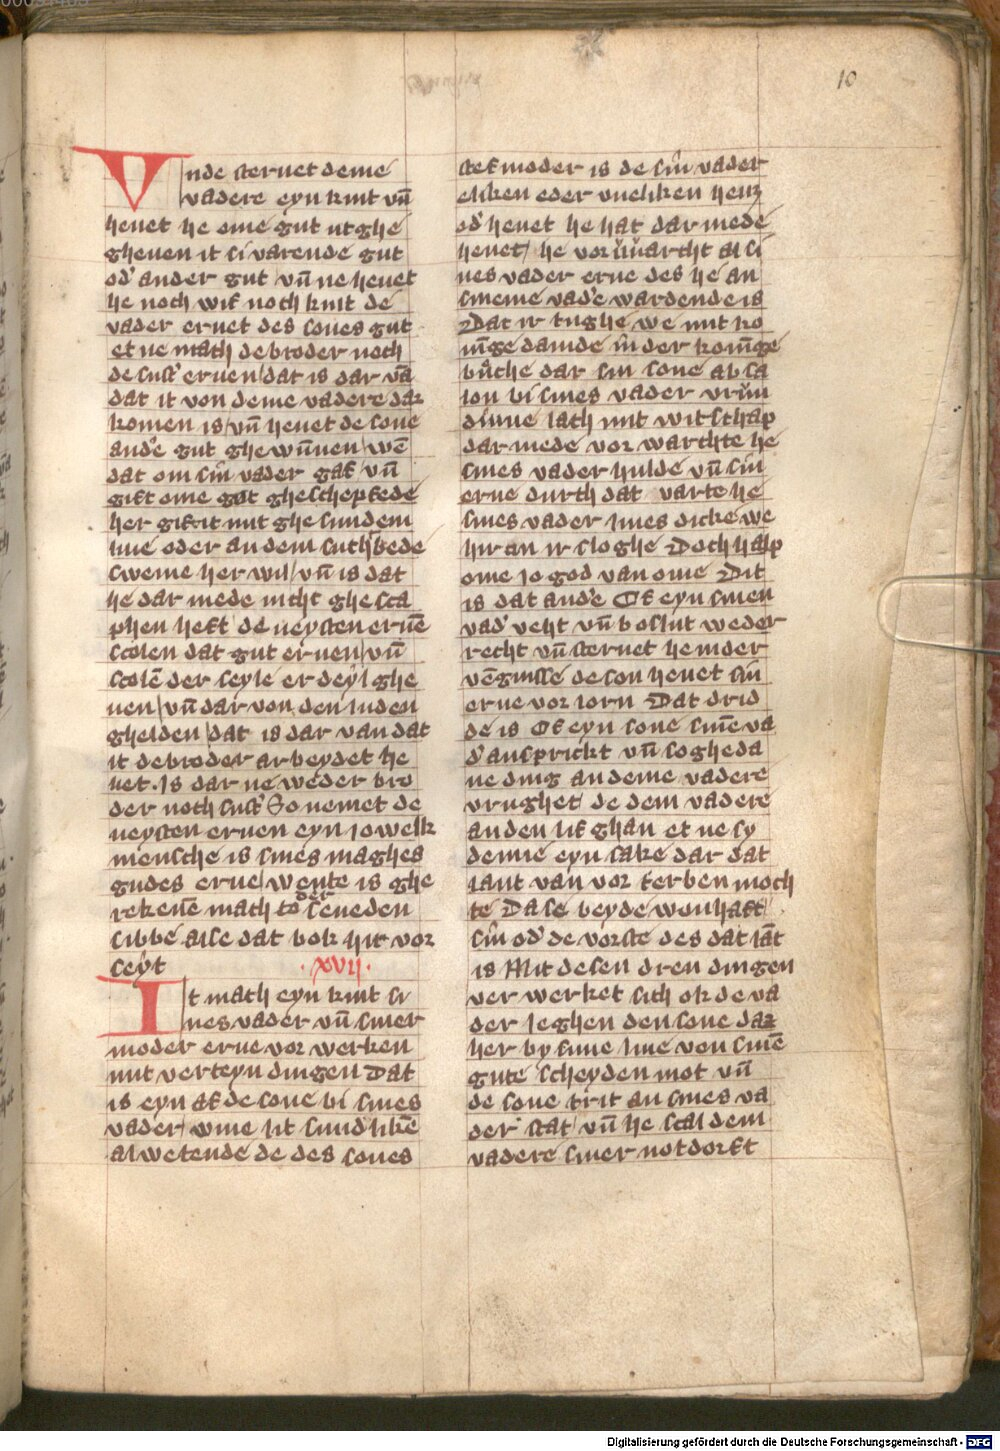 10
Unde steruet deme
vadere eyn kint vn̄
heuet he ome gut ut ghe
gheuen it si varende gut
od' ander gut vn̄ ne heuet
he noch wif noch kint de
vader eruet des sones gut
et ne mach de broder noch
de sust' eruen dat is dar v̄a
dat it von deme vadere dar
komen is vn̄ heuet de sone
and'e gut ghewūnen wē
dat om sin vader gaf vn̄
gift ome got gheschepfede
her gift it mit ghesundem
liue oder an dem suchbedde
sweme her wil vn̄ is dat
he dar mede nicht ghesca
phen heft de neysten eruē
scolen dat gut eruen vn̄
scolē der seyle er deyl ghe
uen vn̄ dar von den luden
ghelden dat is dar van dat
it de broder arbeydet he
uet. Is dar ne weder bro
der noch sust' So nemet de
neysten eruen eyn iowelk
mensche is sines maghes
gudes erue wente is ghe
rekenē mach to der seueden
sibbe alse dat bok hir vor
seyt .xvij.
It mach eyn kint si
nes vader vn̄ siner
moder erue vor werken
mit verteyn dingen Dat
is eyn af de sone bi sines
vader wiue lit sundlikē
al wetende de des sones
stefmoder is de sin vader
eliken eder vneliken heuz
od' heuet he hat dar mede
heuet he vorwarcht al si
nes vader erue des he an
sineme vad'e wardende is
Dat ir tughe we mit ko
nīge dauide in der konīge
buche dar sin sone absa
lon bi sines vader vrūn
dinne lach mit witschap
dar mede vor warchte he
sines vader hulde vn̄ sin
erue durch dat varte he
sines vader liues dicke we
hir an ir sloghe Doch halp
ome io god van ome Dit
is dat and'e Of eyn sinen
vad' veht vn̄ boslut weder
recht vn̄ steruet he in der
vēgnisse de son heuet sin
erue vor lorn Dat drid
de is Of eyn sone sinē va
d' anspricht vn̄ sogheda
ne ding an deme vadere
vrughet de dem vadere
an den lif ghan et ne sy
denne eyn sake dar dat
lant van vor terben moch
te Da se beyde wonhaft
sin od' de vorste des dat lāt
is Mit desen dren dingen
ver werket sich ok de va
der ieghen den sone dar
her by sime liue von sinē
gute scheyden mot vn̄
de sone trit an sines va
der stat vn̄ he scal dem
vadere siner notdorft
Digitalisierung gefördert durch die Deutsche Forschungsgemeinschaft - DFG